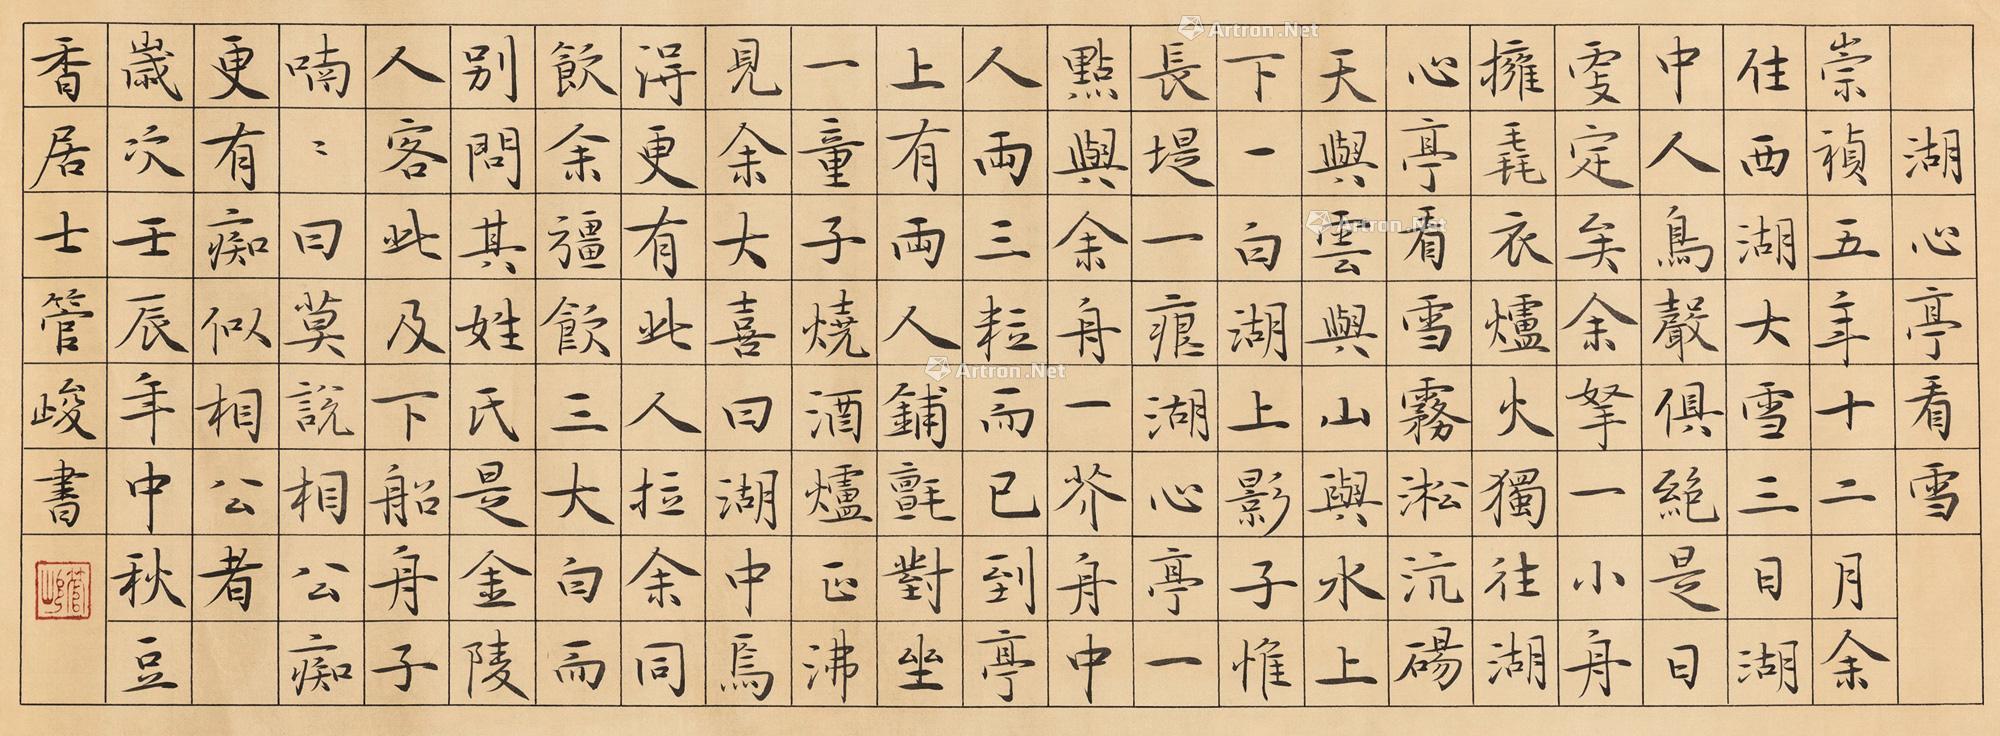 湖心亭看雪
崇禎五年十二月余
住西湖大雪三日湖
中人鳥聲俱絕是日
更定矣余拏一小舟
擁毳衣爐火獨往湖
心亭看雪霧淞沆碭
天與雲與山與水上
下一白湖上影子惟
長堤一痕湖心亭一
點與余舟一芥舟中
人兩三粒而已到亭
上有兩人鋪氈對坐
一童子燒酒爐正沸
見余大喜曰湖中焉
得更有此人拉余同
飲余彊飲三大白而
別問其姓氏是金陵
人客此及下船舟子
喃〻曰莫說相公痴
更有痴似相公者
歲次壬辰年中秋豆
香居士管峻書
管峻
Artron.Net
Artron.Net
Artron.Net